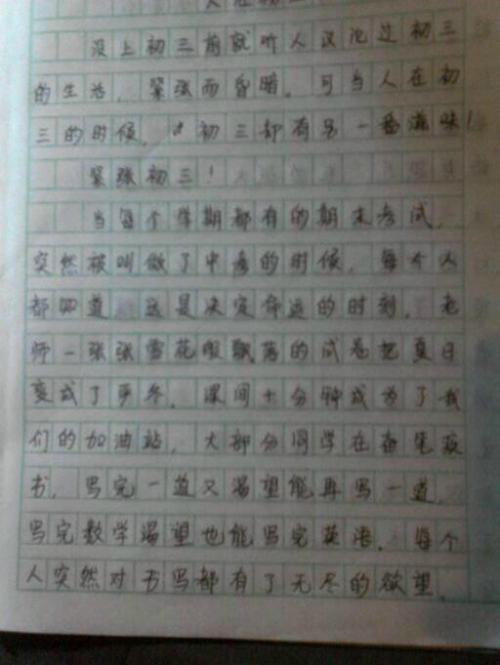 没上初三前就听人议论过初三
的生活,紧张而昏暗。可当人在初
三的时候,初三都有另一番滋味!
紧张初三!
当每个学期都有的期末考试,
突然被叫做了中考的时候,每个人
都知道,这是决定命运的时刻。老
师一张张雪花般飘落的试卷把夏日
变成了严冬。课间十分钟成为了我
们的加油站,大部分同学在奋笔疾
书,写完一道又渴望能再写一道,
写完数学渴望也能写完英语。每个
人突然对书写都有了无尽的欲望。